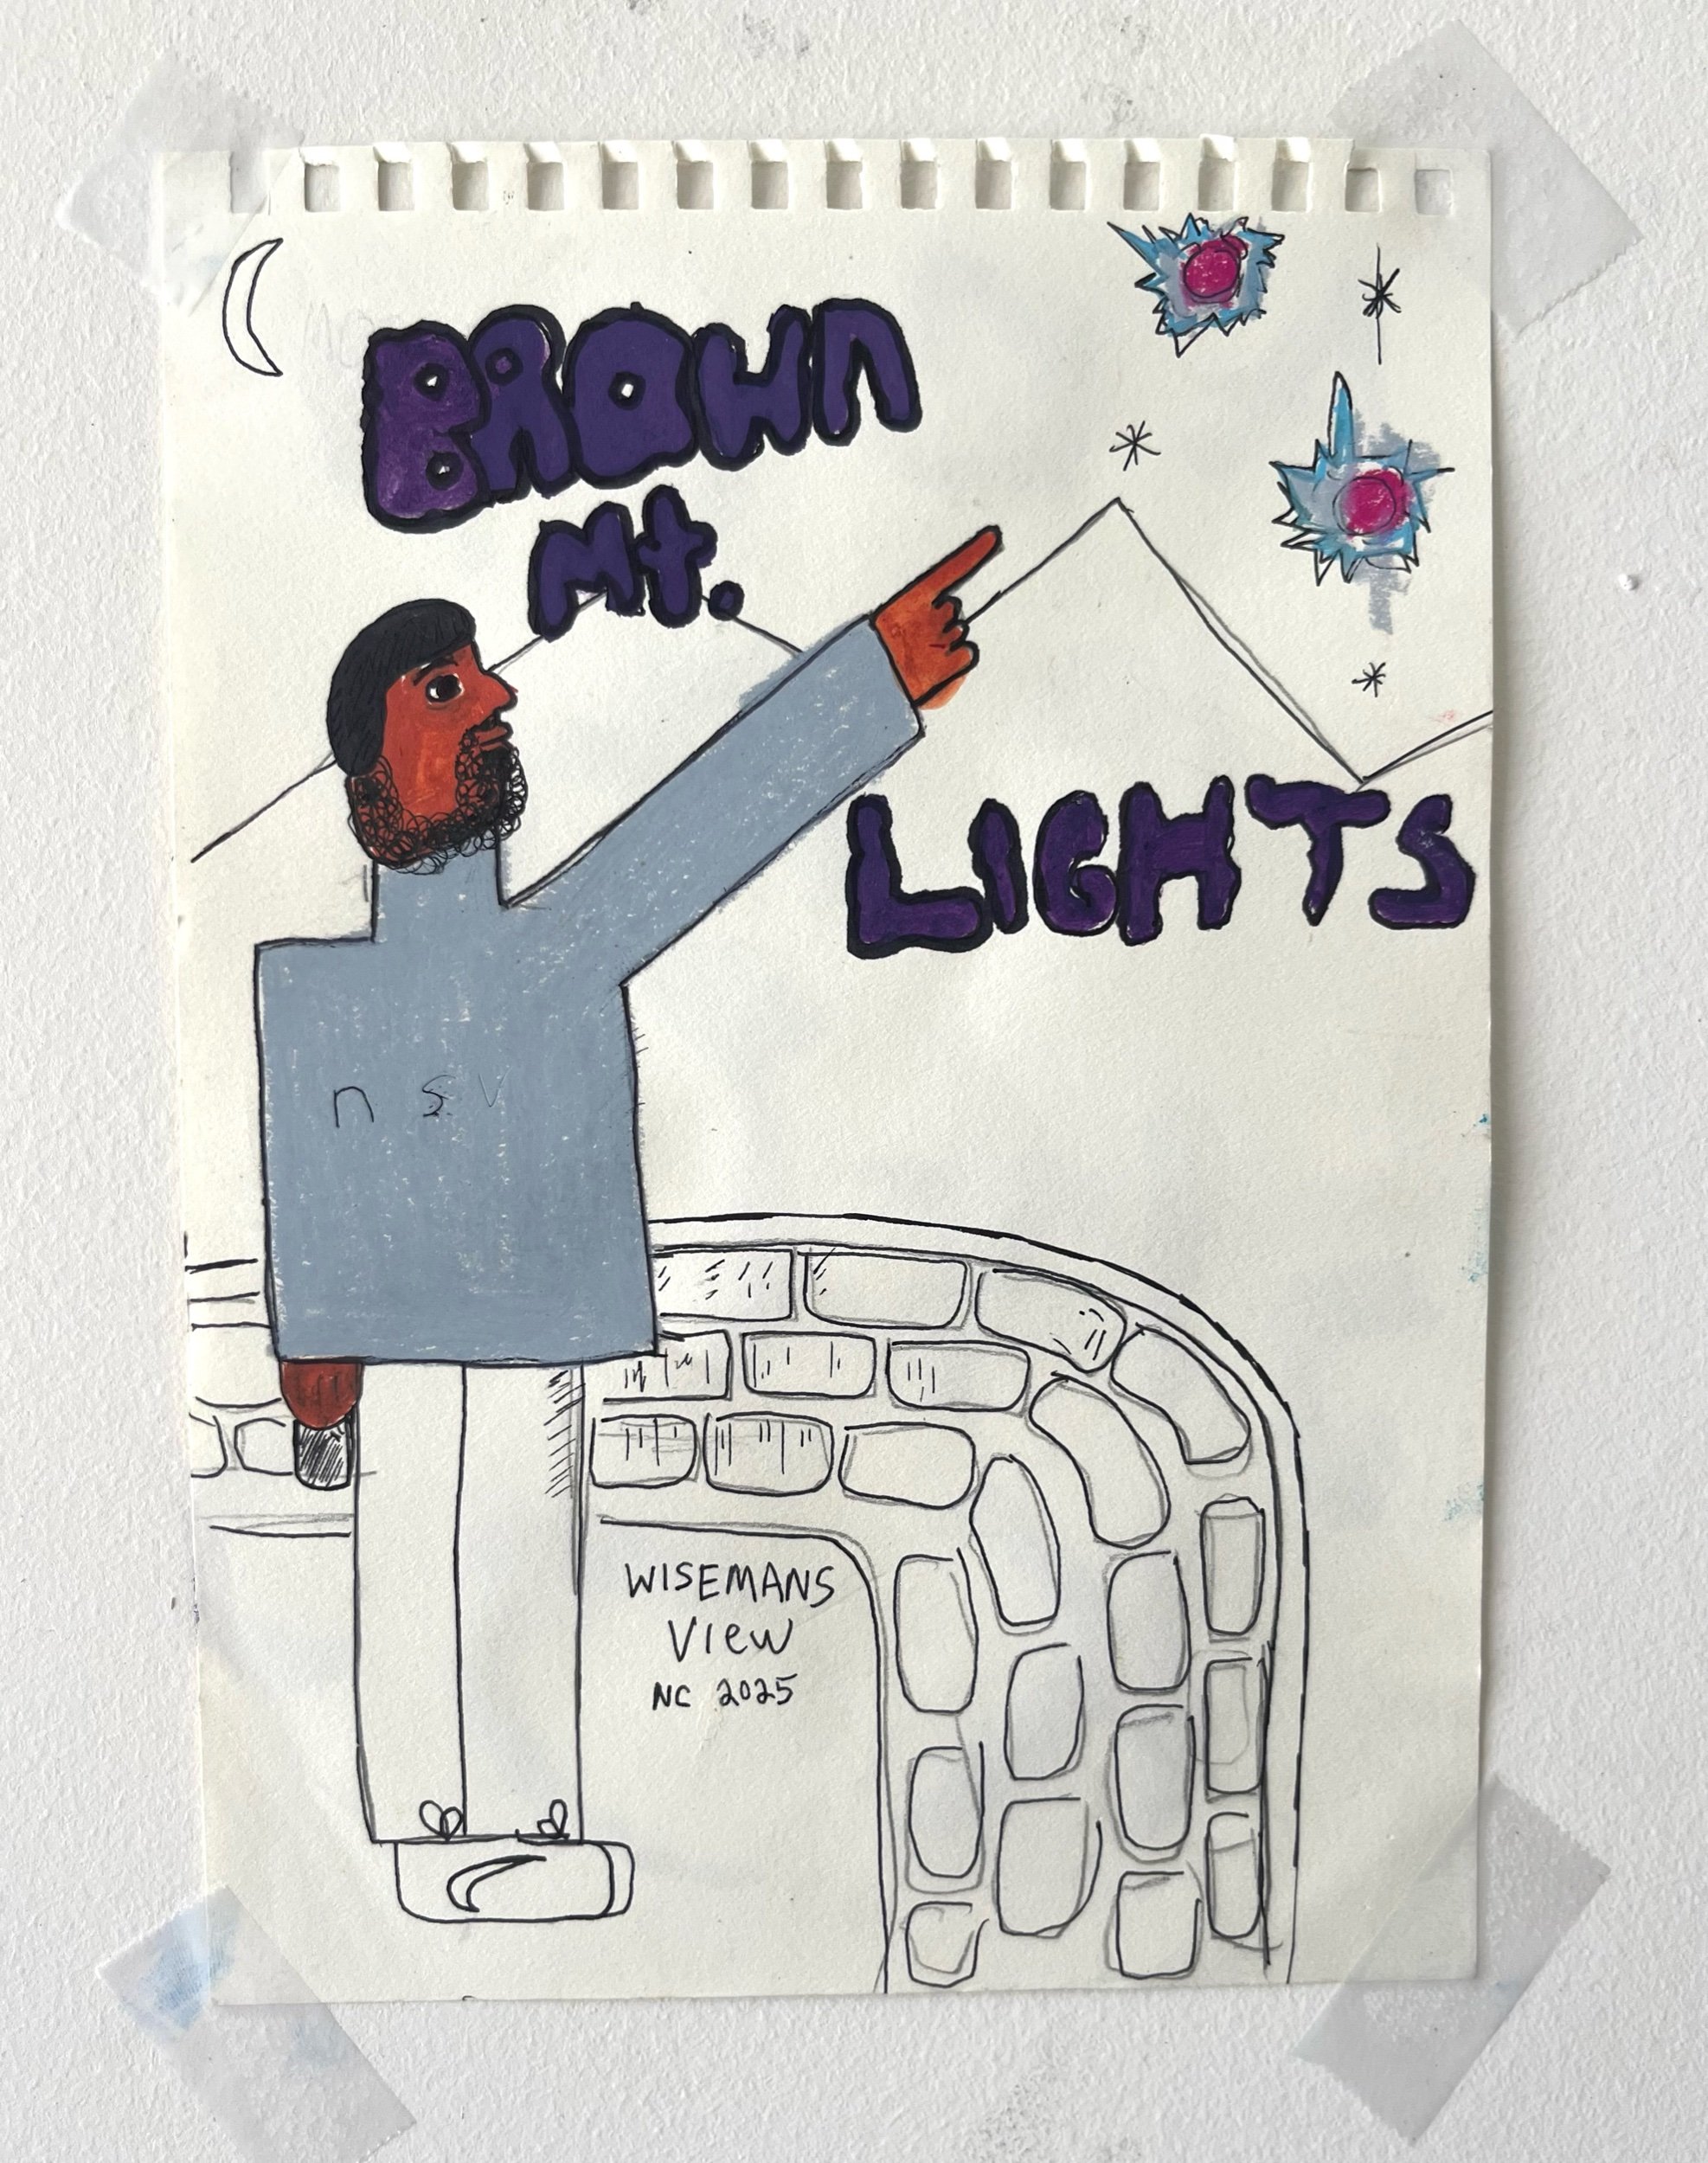 BROWN
Mt.
LIGHTS
n s v
WISEMANS
VIEW
NC 2025